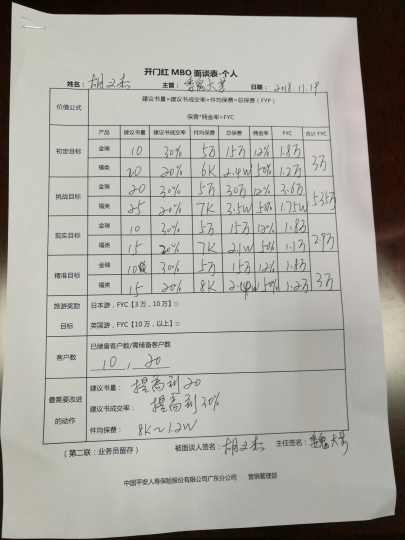 开门红 MBO 面谈表-个人
姓名：胡文杰 主管：魏大芳 日期：2018.11.19
价值公式 建议书量*建议书成交率*件均保费=总保费（FYP）
保费*佣金率=FYC
产品 建议书量 建议书成交率 件均保费 总保费 佣金率 FYC 合计 FYC
初定目标 金瑞 10 30% 5万 15万 12% 1.8万 3万
福类 20 20% 6K 2.4W 50% 1.2万
挑战目标 金瑞 20 30% 5万 30万 12% 3.6万 5.35万
福类 25 20% 7K 3.5W 50% 1.75W
现实目标 金瑞 10 30% 5万 15万 12% 1.8万 2.9万
福类 15 20% 7K 2.1W 50% 1.1万
精准目标 金瑞 10 30% 5万 15万 12% 1.8万 3万
福类 15 20% 8K 2.4W 50% 1.2万
旅游奖励目标 日本游，FYC【3万，10万】□
英国游，FYC【10万，以上】□
客户数 已储备客户数/需储备客户数
10 , 20
最需要改进的动作 建议书量：提高到20
建议书成交率：提高到30%
件均保费：8K~1.2W
（第二联：业务员留存） 被面谈人签名：胡文杰 主任签名：魏大芳
中国平安人寿保险股份有限公司广东分公司 营销管理部